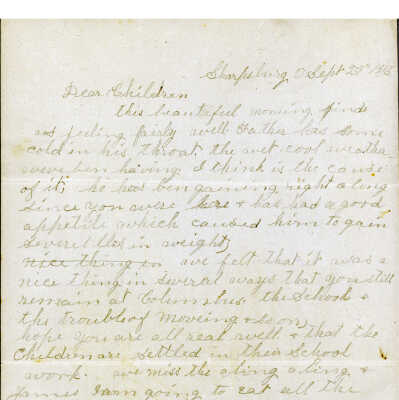 Sharpsburg O Sept 23rd
Dear Children
this beautiful morning finds
us feeling fairly well Father has some
cold in his throat, the wet cool weather
weve ben having I think is the cause
of it, he has ben gaining right along
since you were here & has had a good
appetite which caused him to gain
severl lbs in weight,
nice thing in we felt that it was a
nice thing in several ways that you still
remain at Columbus the School &
the trouble of moveing & soon,
hope you are all real well & that the
Children are settled in their School
work. we miss the &
James I am going to eat all the